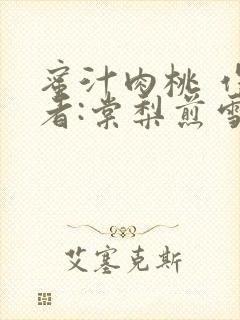 蜜汁肉桃
者:棠梨煎
艾塞克斯